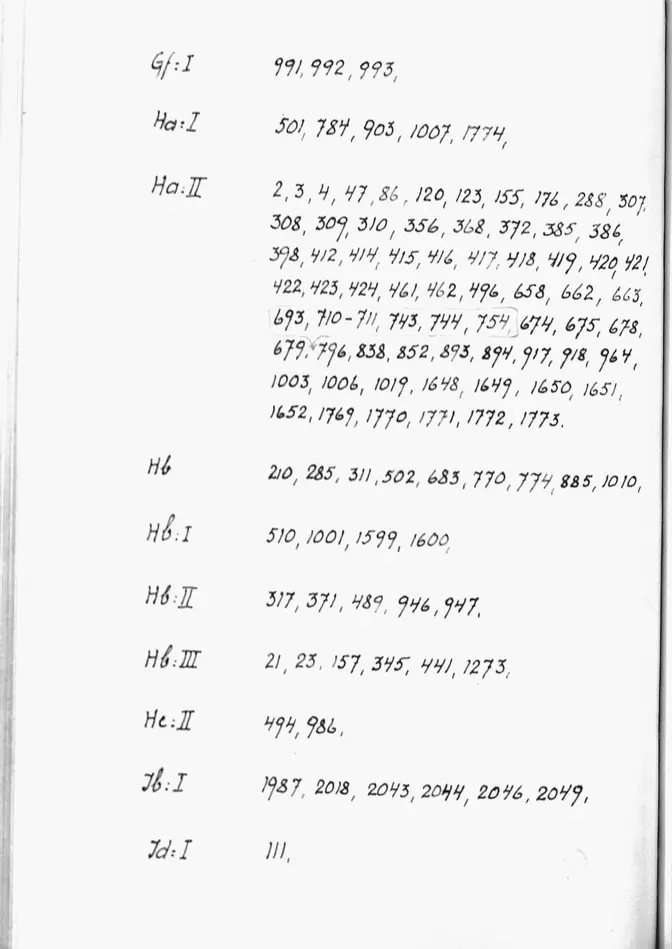 Gf:I 991, 992, 993,
Ha:I 501, 784, 903, 1007, 1774,
Ha:II 2, 3, 4, 47, 86, 120, 123, 155, 176, 288, 307,
308, 309, 310, 356, 368, 372, 385, 386,
398, 412, 414, 415, 416, 417, 418, 419, 420, 421,
422, 423, 424, 461, 462, 496, 658, 662, 663,
693, 710-711, 743, 744, 754, 674, 675, 678,
679, 796, 838, 852, 893, 894, 917, 918, 964,
1003, 1006, 1019, 1648, 1649, 1650, 1651,
1652, 1769, 1770, 1771, 1772, 1773.
Hb 210, 285, 311, 502, 683, 770, 774, 885, 1010,
Hb:I 510, 1001, 1599, 1600,
Hb:II 317, 371, 489, 946, 947,
Hb:III 21, 23, 157, 345, 441, 1273,
Hc:II 494, 986,
Ib:I 1987, 2018, 2043, 2044, 2046, 2049,
Id:I 111,